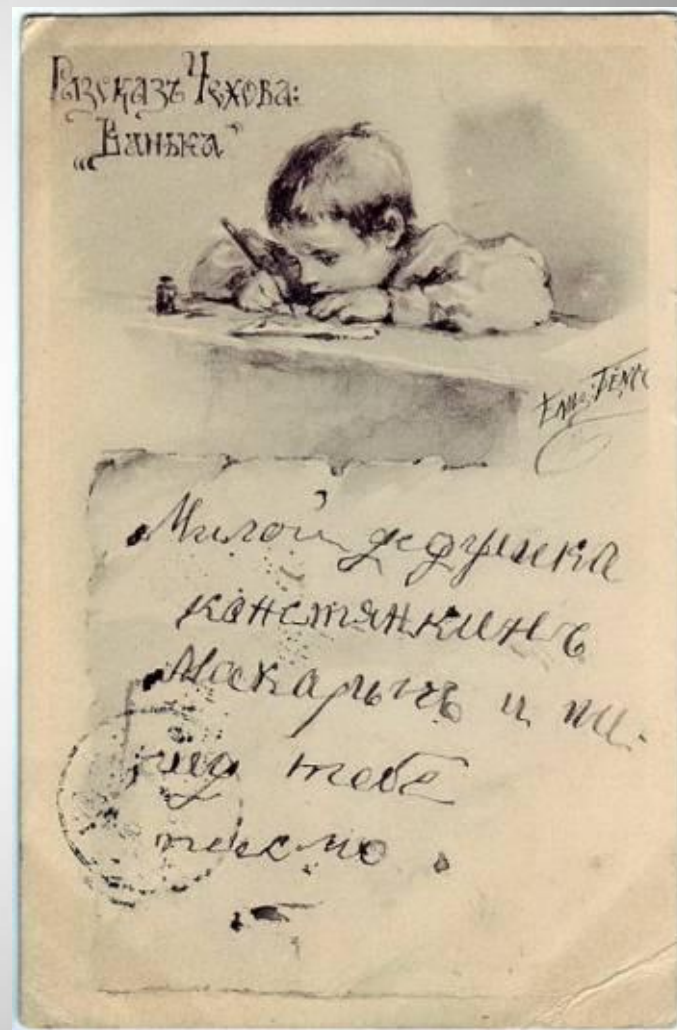 Разсказъ Чехова:
„Ванька"
Елис: Бёмъ
Милой дедушка
констянкинъ
Макарычъ и пи-
шу тебе
писмо.